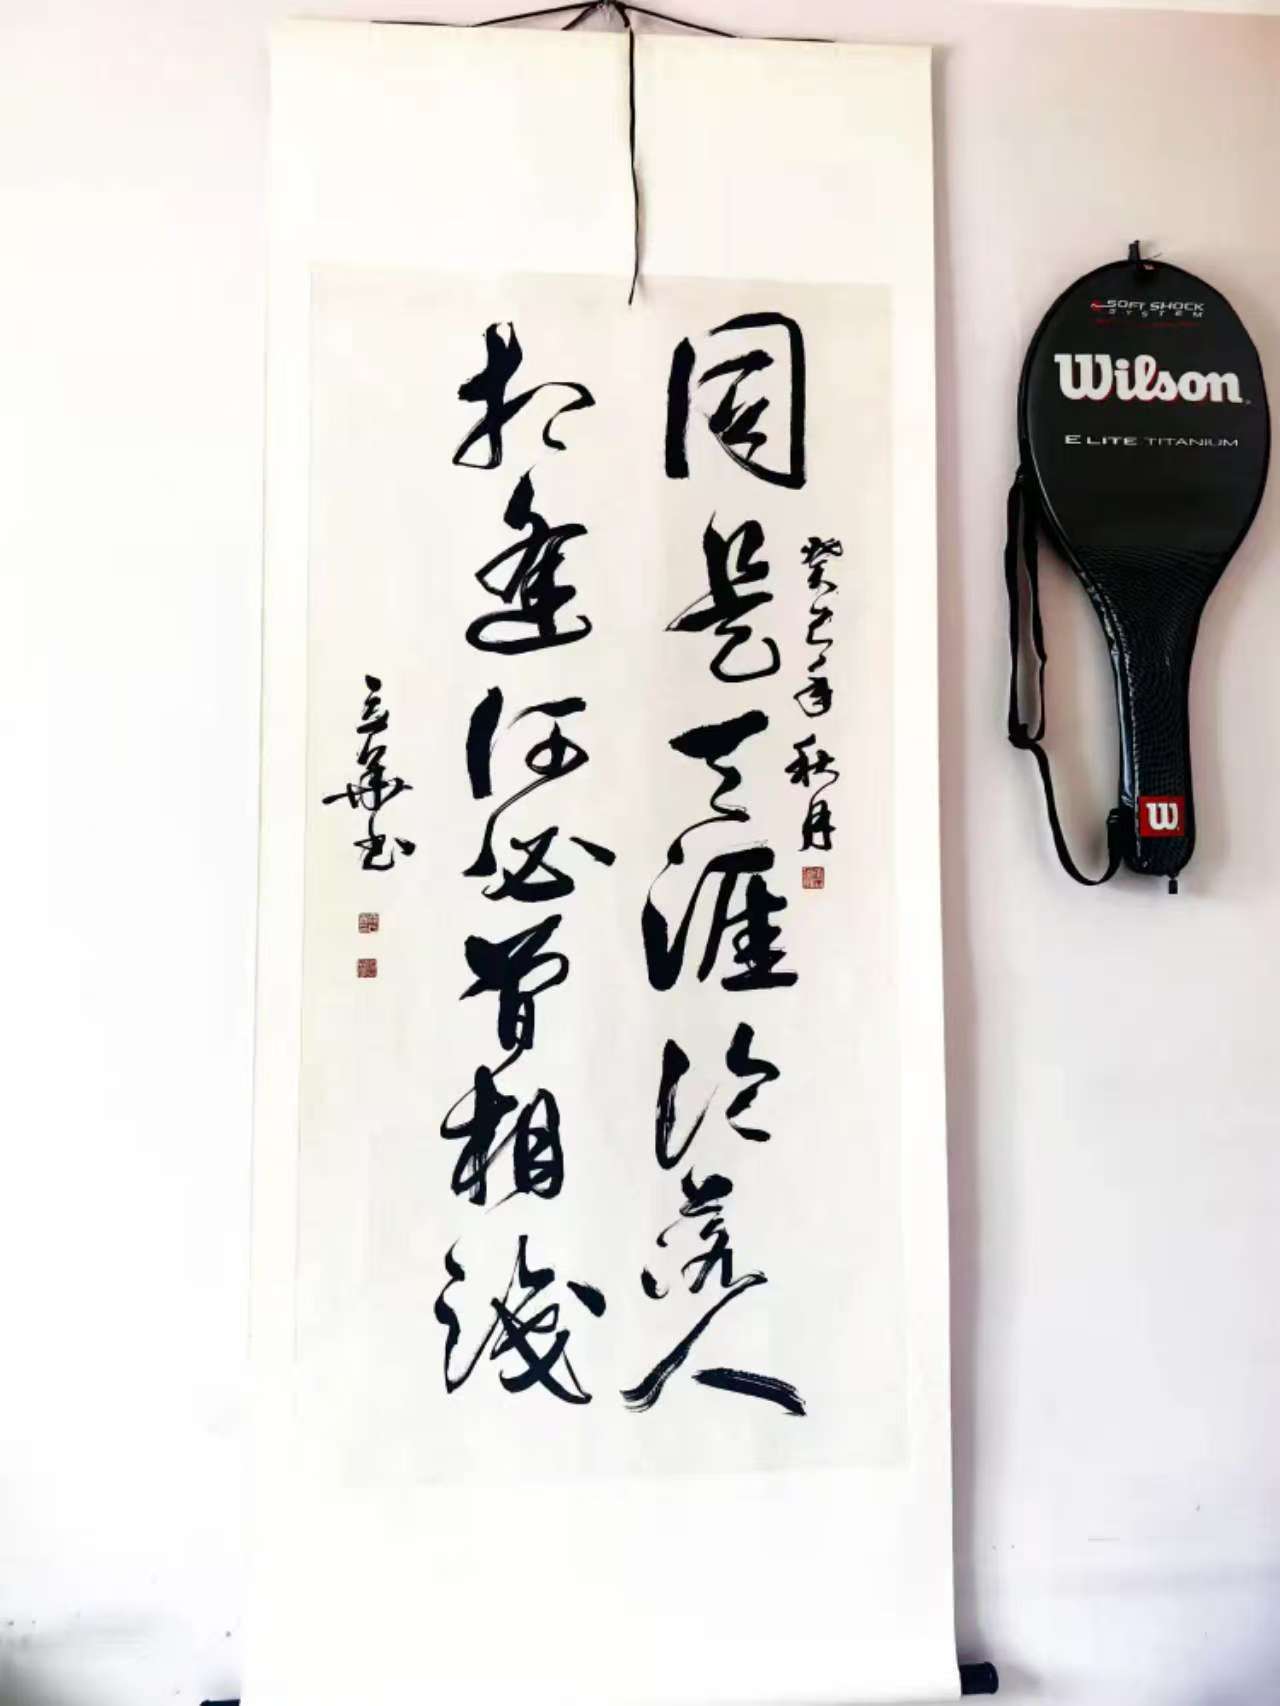 癸巳年秋月
同是天涯沦落人
相逢何必曾相識
立華书
SOFT SHOCK
SYSTEM
Wilson
ELITE TITANIUM
W